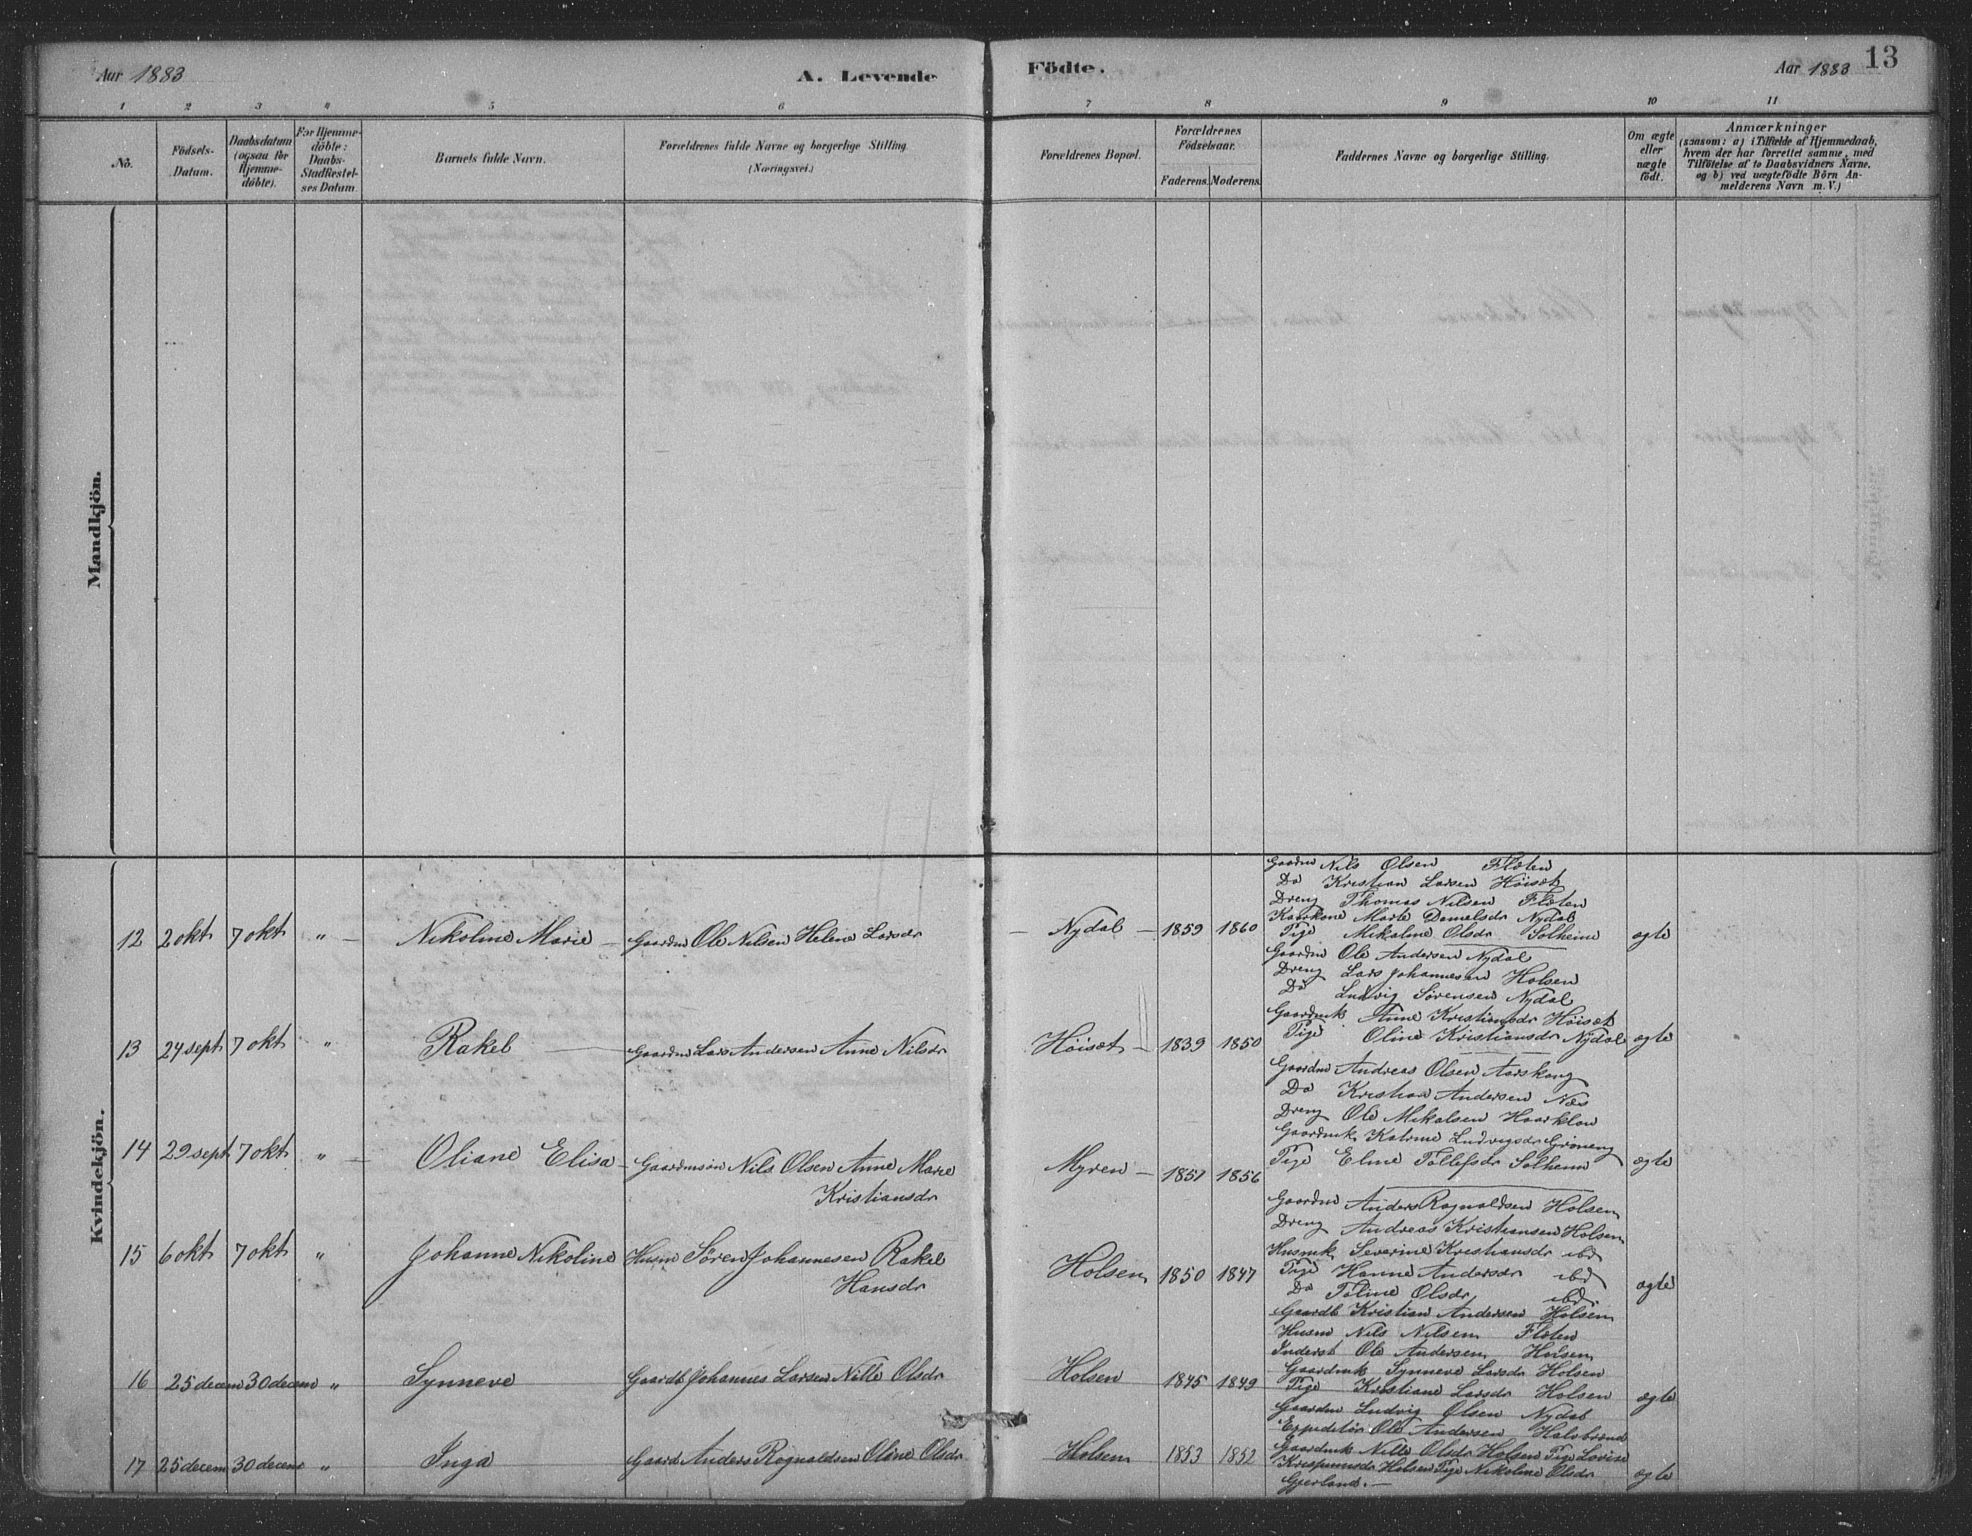 Aar 1883
A. Levende
Födte.
Aar 1883
13
1 2 3 4 5 6 7 8 9 10 11
No.
Födsels-
Datum.
Daabsdatum
(ogsaa for
Hjemme-
döbte).
For Hjemme-
döbte:
Daabs-
Stadfestel-
ses Datum
Barnets fulde Navn.
Forældrenes fulde Navne og borgerlige Stilling.
(Næringsvei.)
Forældrenes Bopæl.
Forældrenes
Födselsaar.
Faderens. Moderens.
Faddernes Navne og borgerlige Stilling.
Om ægte
eller
uægte
født.
Anmærkninger
(saasom: a) i Tilfælde af Hjemmedaab,
hvem der har forrettet samme, med
Tilföielse af to Daabsvidners Navne.
og b) ved uægtefödte Börn An-
melderens Navn m. V.)
Mandkjön.
Kvindekjön.
12 2 okt 7 okt " Nikoline Marie Gaardm Ole Nilsen Helene Larsdr Nydal 1859 1860 ægte
Gaardm Nils Olsen Floten
Do Kristian Larsen Höisæt
Dreng Thomas Nilsen Floten
Kaarkone Marte Danielsdr Nydal
Pige Mikaline Olsdr Solheim
13 24 sept 7 okt " Rakel Gaardm Lars Andersen Anne Nilsdr Höisæt 1839 1850 ægte
Gaardm Ole Andersen Nydal
Dreng Lars Johannesen Holsen
Do Ludvig Sörensen Nydal
Gaardmk Anne Kristiansdr Höisæt
Pige Oline Kristiansdr Nydal
14 29 sept 7 okt " Oliane Elisa Gaardmsön Nils Olsen Anne Marie
Kristiansdr Myren 1857 1856 ægte
Gaardm Andreas Olsen Aarskaug
Do Kristian Andersen Næs
Dreng Ole Mikalsen Haarklau
Gaardmk Katrine Ludvigsdr Gröneng
Pige Eline Tollefsdr Solheim
15 6 okt 7 okt " Johanne Nikoline Husm Sören Johannesen Rakel
Hansdr Holsen 1850 1847 ægte
Gaardm Anders Rognaldsen Holsen
Dreng Andreas Kristiansen Holsen
Husmk Severine Kristiansdr ibd
Pige Hanne Andersdr ibd
Do Toline Olsdr ibd
16 25 decem 30 decem " Synneve Gaardb Johannes Larsen Nille Olsdr Holsen 1845 1849 ægte
Gaardb Kristian Andersen Holsen
Husm Nils Nilsen Floten
Inderst Ole Andersen Holsen
Gaardmk Synneve Larsdr Holsen
Pige Kristiane Larsdr Holsen
17 25 decem 30 decem " Inga Gaardb Anders Rognaldsen Oline Olsdr Holsen 1853 1852 ægte
Gaardm Ludvig Olsen Nydal
Expeditör Ole Andersen
Gaardmk Nille Olsdr Holsen Pige Lovise
Holsen Pige Nikoline Olsdr
Gjerland.